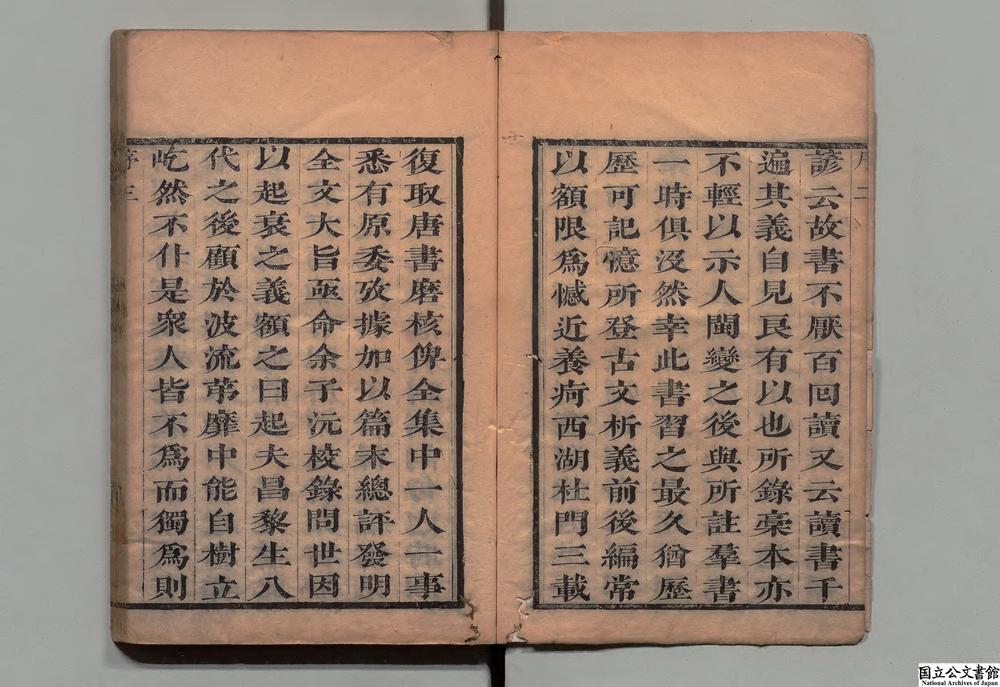 諺云故書不厭百回讀又云讀書千
遍其義自見良有以也所錄稾本亦
不輕以示人閩變之後與所註羣書
一時俱沒然幸此書習之最久猶歷
歷可記憶所登古文析義前後編常
以額限爲憾近養疴西湖杜門三載
復取唐書磨核俾全集中一人一事
悉有原委攷據加以篇末總評發明
全文大旨亟命余子沅校錄問世因
以起衰之義額之曰起夫昌黎生八
代之後顧於波流苐靡中能自樹立
屹然不什是衆人皆不爲而獨爲則
序三
国立公文書館
National Archives of Japan